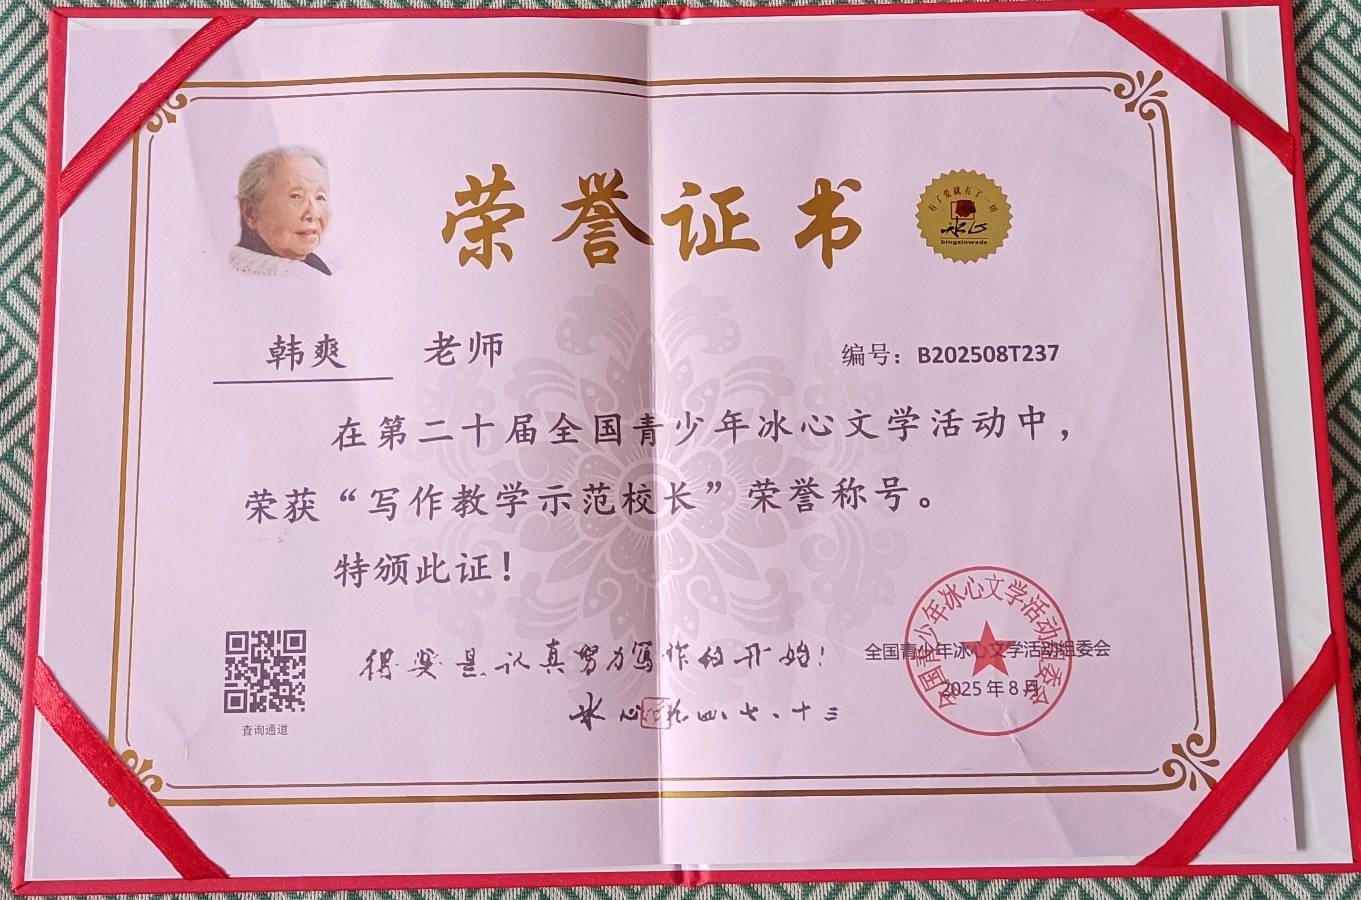 荣誉证书
有了爱就有了一切
冰心
bingxinwxds
韩爽 老师
编号：B202508T237
在第二十届全国青少年冰心文学活动中，
荣获“写作教学示范校长”荣誉称号。
特颁此证！
得奖是认真努力写作的开始！
冰心 九四、七、十三
查询通道
全国青少年冰心文学活动组委会
2025年8月
全国青少年冰心文学活动组委会